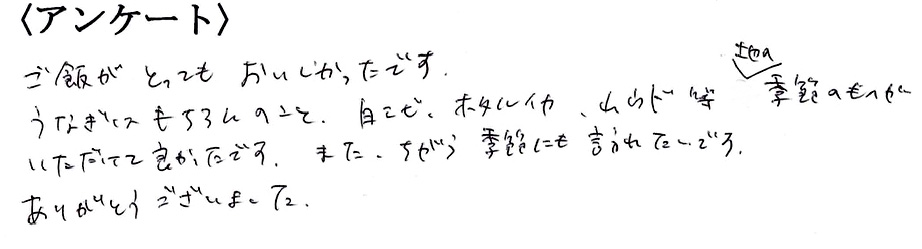 〈アンケート〉
ご飯が とっても おいしかったです。
土地の
うなぎはもちろんのこと、白エビ、ホタルイカ、わらび等 季節のものが
いただけて良かったです。また、ちがう季節にも訪れたいです。
ありがとうございました。